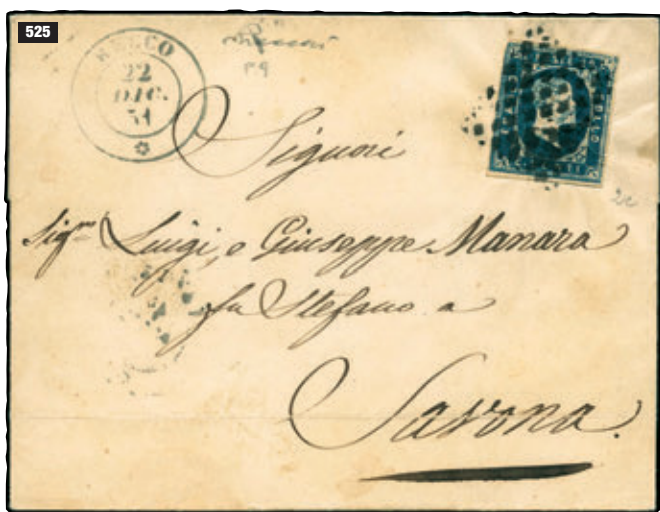 525
RECCO
22
DIC.
51
Signori
Sig.ri Luigi, e Giuseppe Manara
fu Stefano a
Savona.
2c